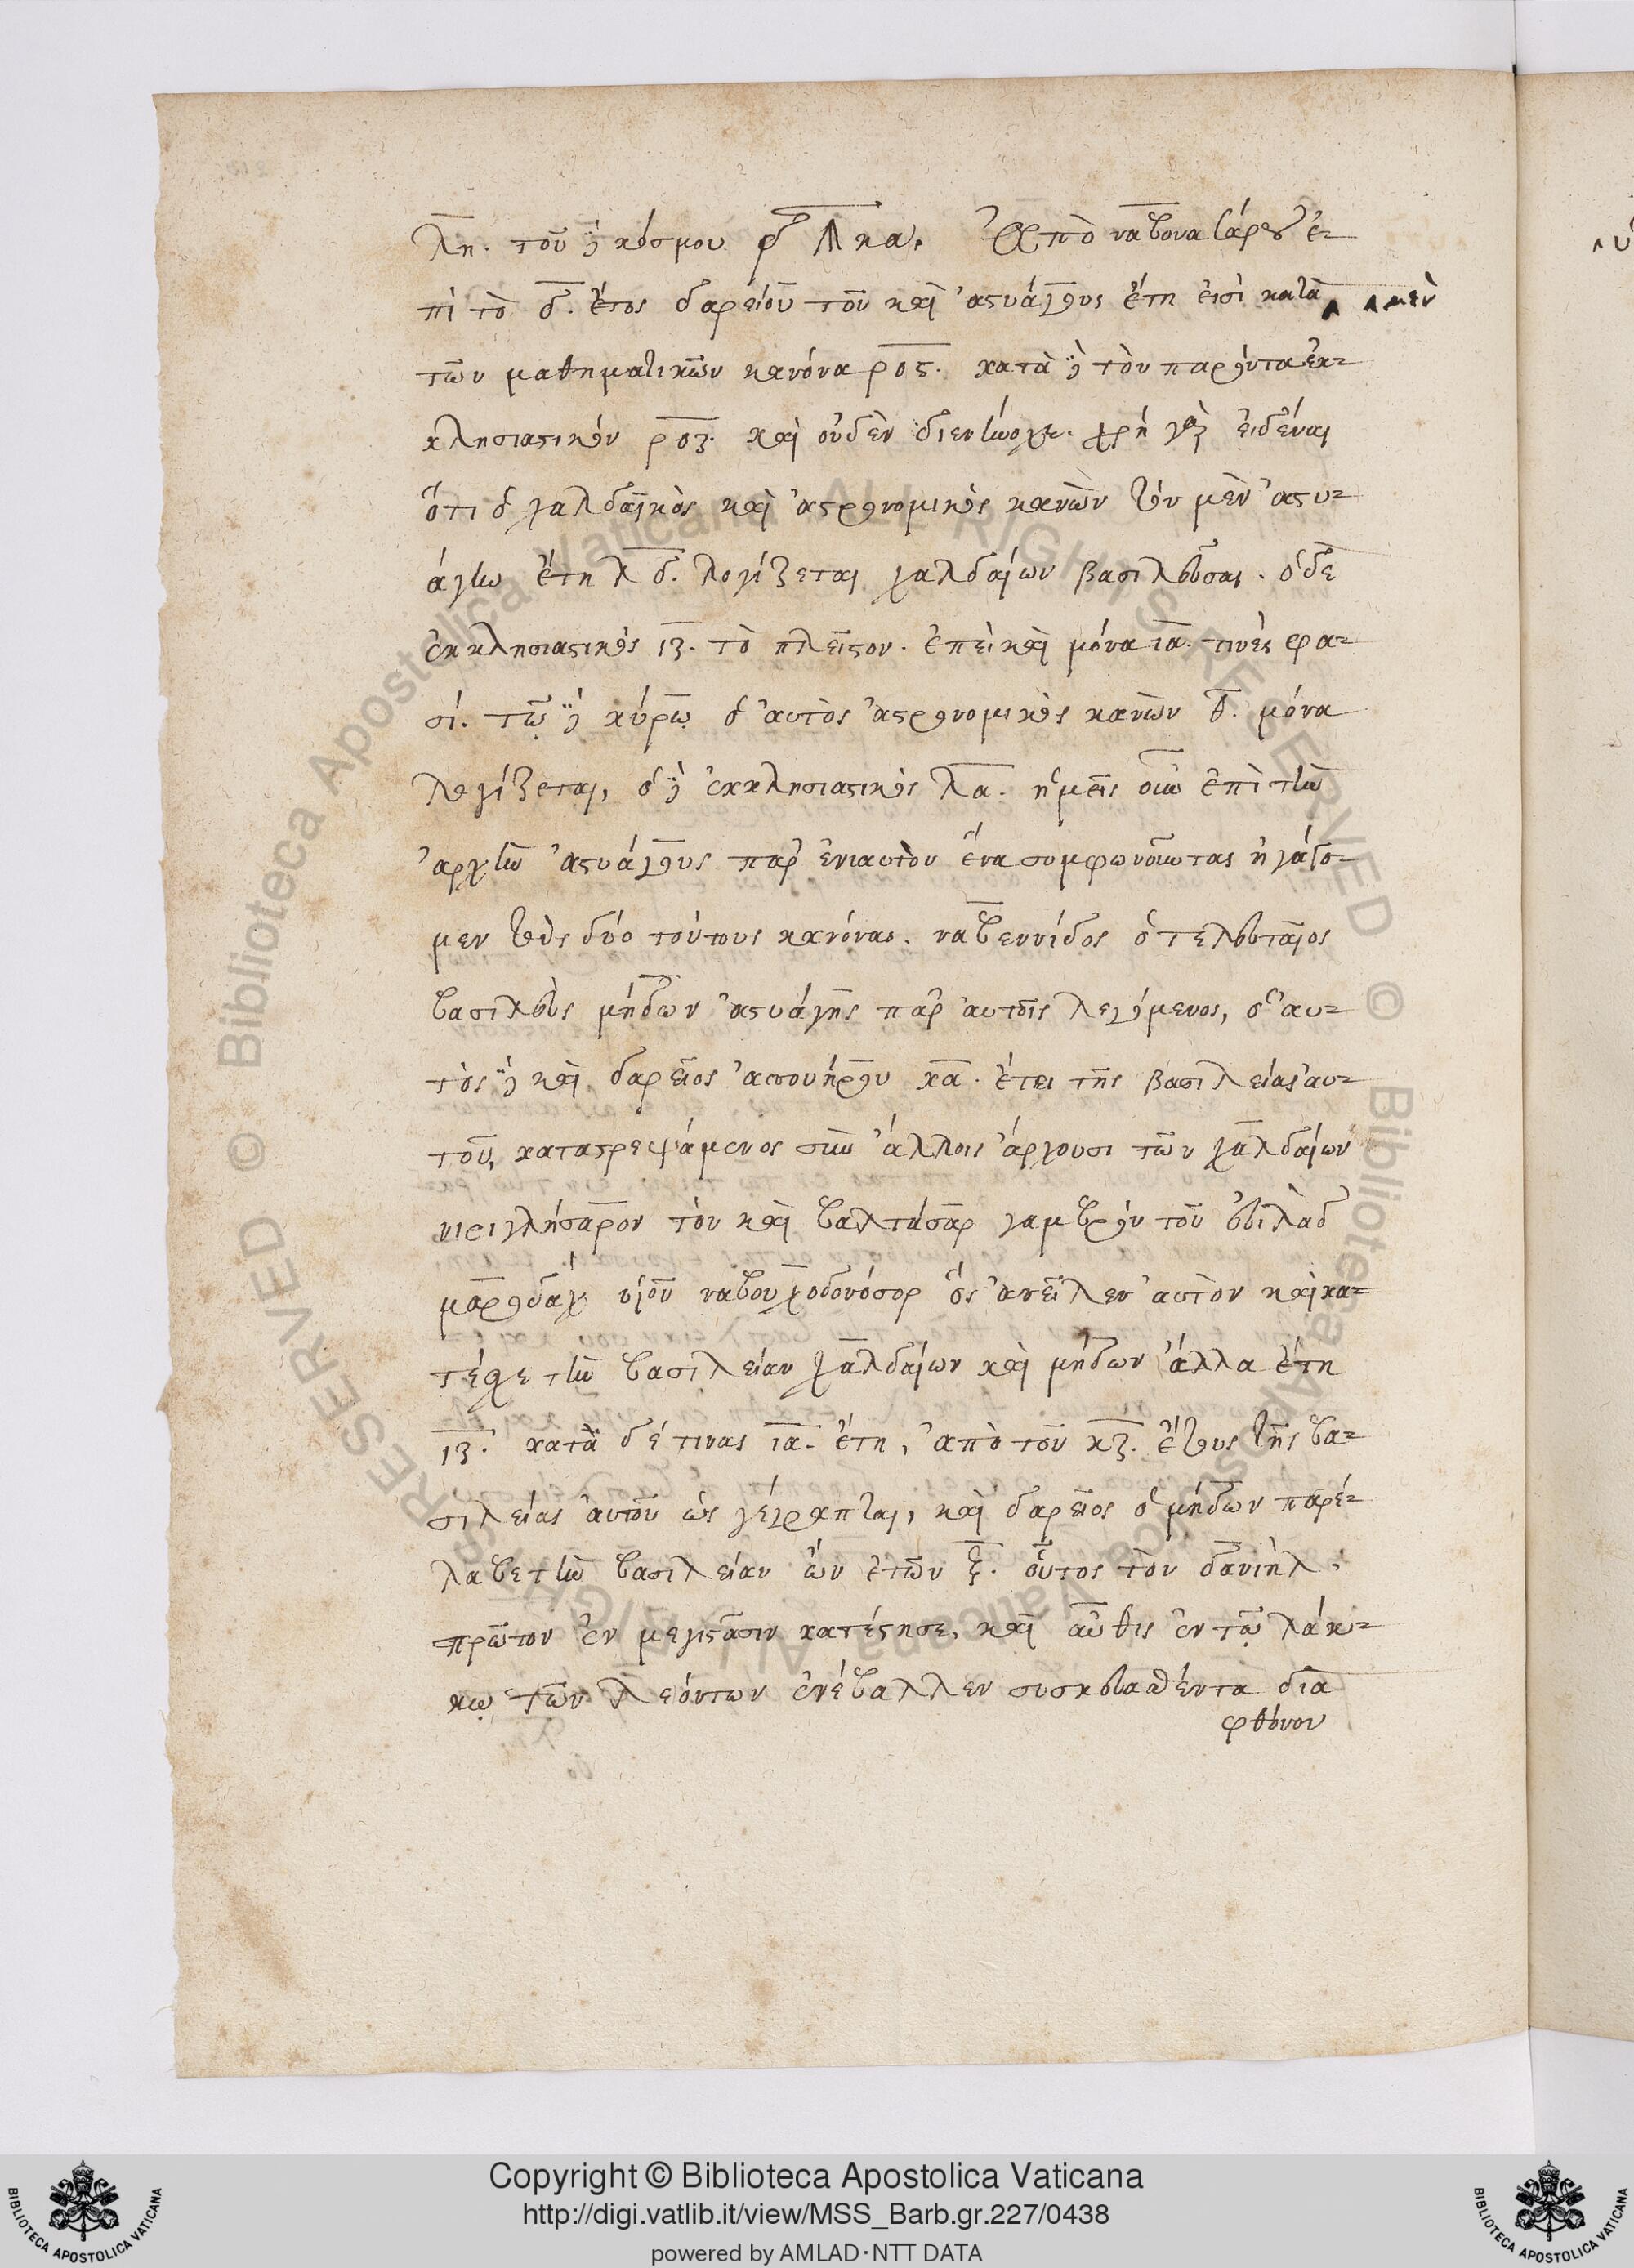 λη. τοῦ δὲ κόσμου ͵δ Ϡκα. Ἀπὸ ναβονασάρου ἐ-
πὶ τὸ δ. ἔτος δαρείου τοῦ καὶ ἀστυάγους ἔτη εἰσὶ κατὰ μὲν
τῶν μαθηματικῶν κανόνα ρος. κατὰ δὲ τὸν παρόντα ἐκ-
κλησιαστικὸν ροζ. καὶ οὐδὲν διενήνοχε. χρὴ γὰρ εἰδέναι
ὅτι ὁ χαλδαϊκὸς καὶ ἀστρονομικὸς κανὼν τὸν μὲν ἀστυ-
άγην ἔτη λδ. λογίζεται χαλδαίων βασιλεῦσαι. ὁ δὲ
ἐκκλησιαστικὸς ιζ. τὸ πλεῖστον. ἐπεὶ καὶ μόνα ια. τινές φα-
σί. τῷ δὲ κύρῳ ὁ αὐτὸς ἀστρονομικὸς κανὼν θ. μόνα
λογίζεται, ὁ δὲ ἐκκλησιαστικὸς λα. ἡμεῖς οὖν ἐπὶ τὴν
ἀρχὴν ἀστυάγους παρ' ἐνιαυτὸν ἕνα συμφωνοῦντας ἠγάγο-
μεν τοὺς δύο τούτους κανόνας. ναβεννίδος ὁ τελευταῖος
βασιλεὺς μήδων ἀστυάγης παρ' αὐτοῖς λεγόμενος, ὁ αὐ-
τὸς δὲ καὶ δαρεῖος ἀσουήρου κα. ἔτει τῆς βασιλείας αὐ-
τοῦ, καταστρεψάμενος σὺν ἄλλοις ἄρχουσι τῶν χαλδαίων
νιριγλήσαρον τὸν καὶ βαλτάσαρ γαμβρὸν τοῦ εὐιλὰδ
μαροδάχ υἱοῦ ναβουχοδονόσορ ὃς ἀνεῖλεν αὐτὸν καὶ κα-
τέσχε τὴν βασιλείαν χαλδαίων καὶ μήδων ἄλλα ἔτη
ιζ. κατὰ δέ τινας ια. ἔτη, ἀπὸ τοῦ κζ. ἔτους τῆς βα-
σιλείας αὐτοῦ ὡς γέγραπται, καὶ δαρεῖος ὁ μήδων παρέ-
λαβε τὴν βασιλείαν ὢν ἐτῶν ξ. οὗτος τὸν δανιὴλ
πρῶτον ἐν μεγιστᾶσιν κατέστησε, καὶ αὖθις ἐν τῷ λάκ-
κῳ τῶν λεόντων ἐνέβαλλεν συσκευασθέντα διὰ
φθόνον
Copyright © Biblioteca Apostolica Vaticana
http://digi.vatlib.it/view/MSS_Barb.gr.227/0438
powered by AMLAD·NTT DATA